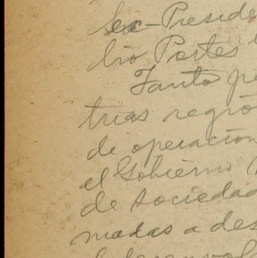 ex-Preside
lio Portes
Tanto pe
trias regio
de operacion
el Gobierno
de sociedad
madas a des